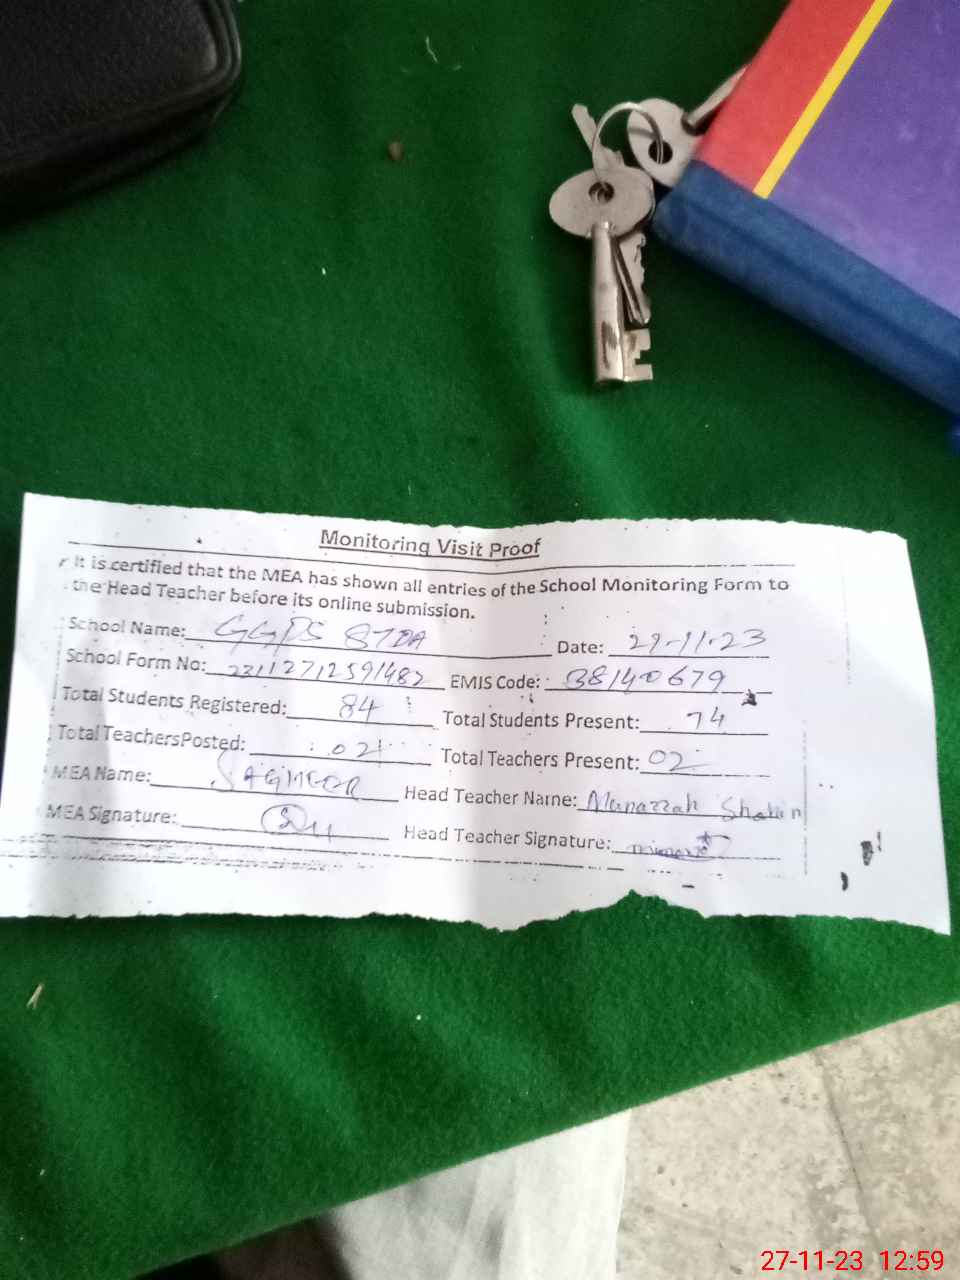 Monitoring Visit Proof
It is certified that the MEA has shown all entries of the School Monitoring Form to
the Head Teacher before its online submission.
School Name: GGPS 87DA Date: 27-11-23
School Form No: 23112712591482 EMIS Code: 38140679
Total Students Registered: 84 Total Students Present: 74
Total TeachersPosted: 02 Total Teachers Present: 02
MEA Name: SAGHEER Head Teacher Name: Munazzah Shahin
MEA Signature: Head Teacher Signature:
27-11-23 12:59